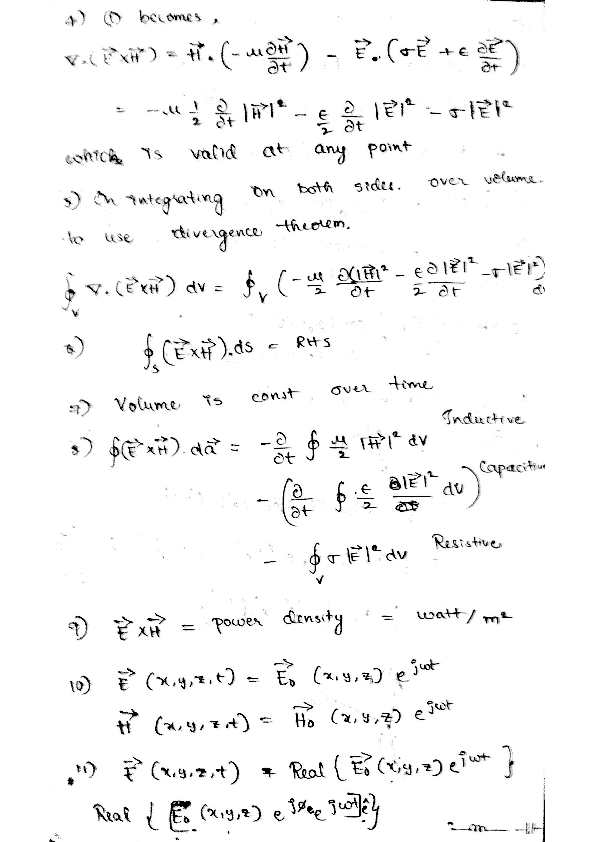 4) ① becomes,
∇.(E⃗×H⃗) = H⃗.(-μ∂H⃗/∂t) - E⃗.(σE⃗ + ϵ ∂E⃗/∂t)
= -μ 1/2 ∂/∂t |H⃗|² - ϵ/2 ∂/∂t |E⃗|² - σ|E⃗|²
which is valid at any point
5) On integrating on both sides. over volume.
to use divergence theorem.
∮v ∇.(E⃗×H⃗) dv = ∮v (-μ/2 ∂(|H⃗|²/∂t - ϵ/2 ∂|E⃗|²/∂t - σ|E⃗|²) d
6) ∮s (E⃗×H⃗).ds = RHS
7) Volume is const over time
Inductive
8) ∮(E⃗×H⃗).da⃗ = -∂/∂t ∮ μ/2 |H⃗|² dv
- (∂/∂t ∮ ϵ/2 |E⃗|² dv) Capacitive
- ∮v σ|E⃗|² dv Resistive
9) E⃗×H⃗ = power density = watt/m²
10) E⃗ (x,y,z,t) = E⃗₀ (x,y,z) e^jωt
H⃗ (x,y,z,t) = H₀ (x,y,z) e^jωt
11) E⃗ (x,y,z,t) = Real { E⃗₀ (x,y,z) e^jωt }
Real { [E₀ (x,y,z) e^jøe e^jωt] ê }